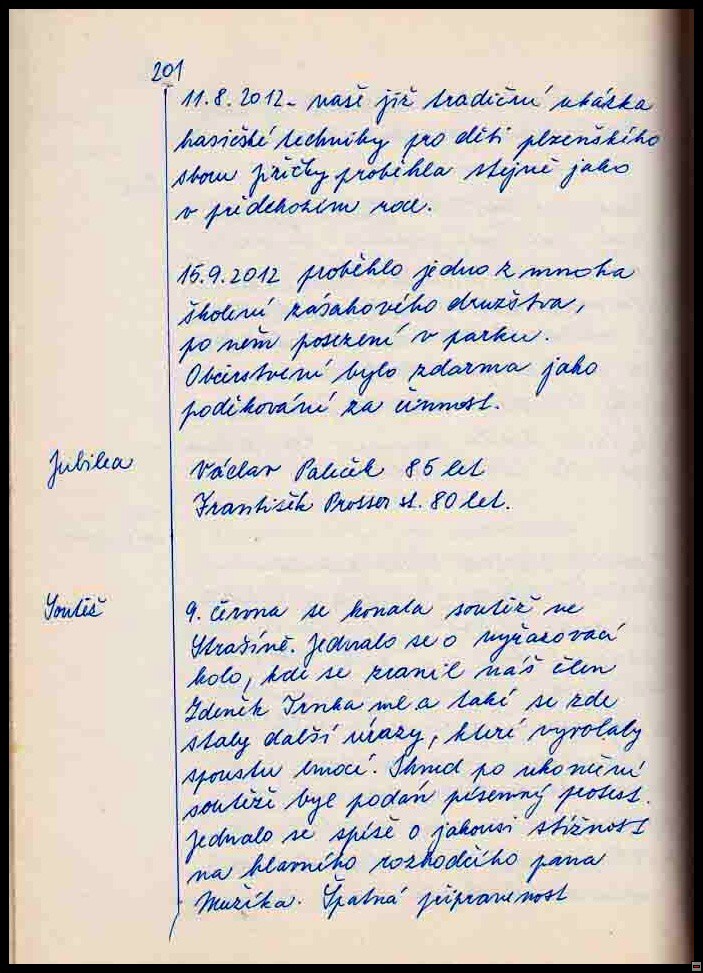 201
11.8.2012 - naše již tradiční ukázka
hasičské techniky pro děti plzeňského
sboru Jiřičky proběhla stejně jako
v předchozím roce.
15.9.2012 proběhlo jedno z mnoha
školení zásahového družstva,
po něm posezení v parku.
Občerstvení bylo zdarma jako
poděkování za činnost.
Jubilea
Václav Paleček 85 let
František Prosser st. 80 let.
Soutěž
9. června se konala soutěž ve
Strašíně. Jednalo se o vyřazovací
kolo, kde se zranil náš člen
Zdeněk Trnka ml. a také se zde
staly další úrazy, které vyvolaly
spoustu emocí. Ihned po ukončení
soutěže byl podán písemný protest.
Jednalo se spíše o jakousi stížnost
na hlavního rozhodčího pana
Mužíka. Špatná připravenost